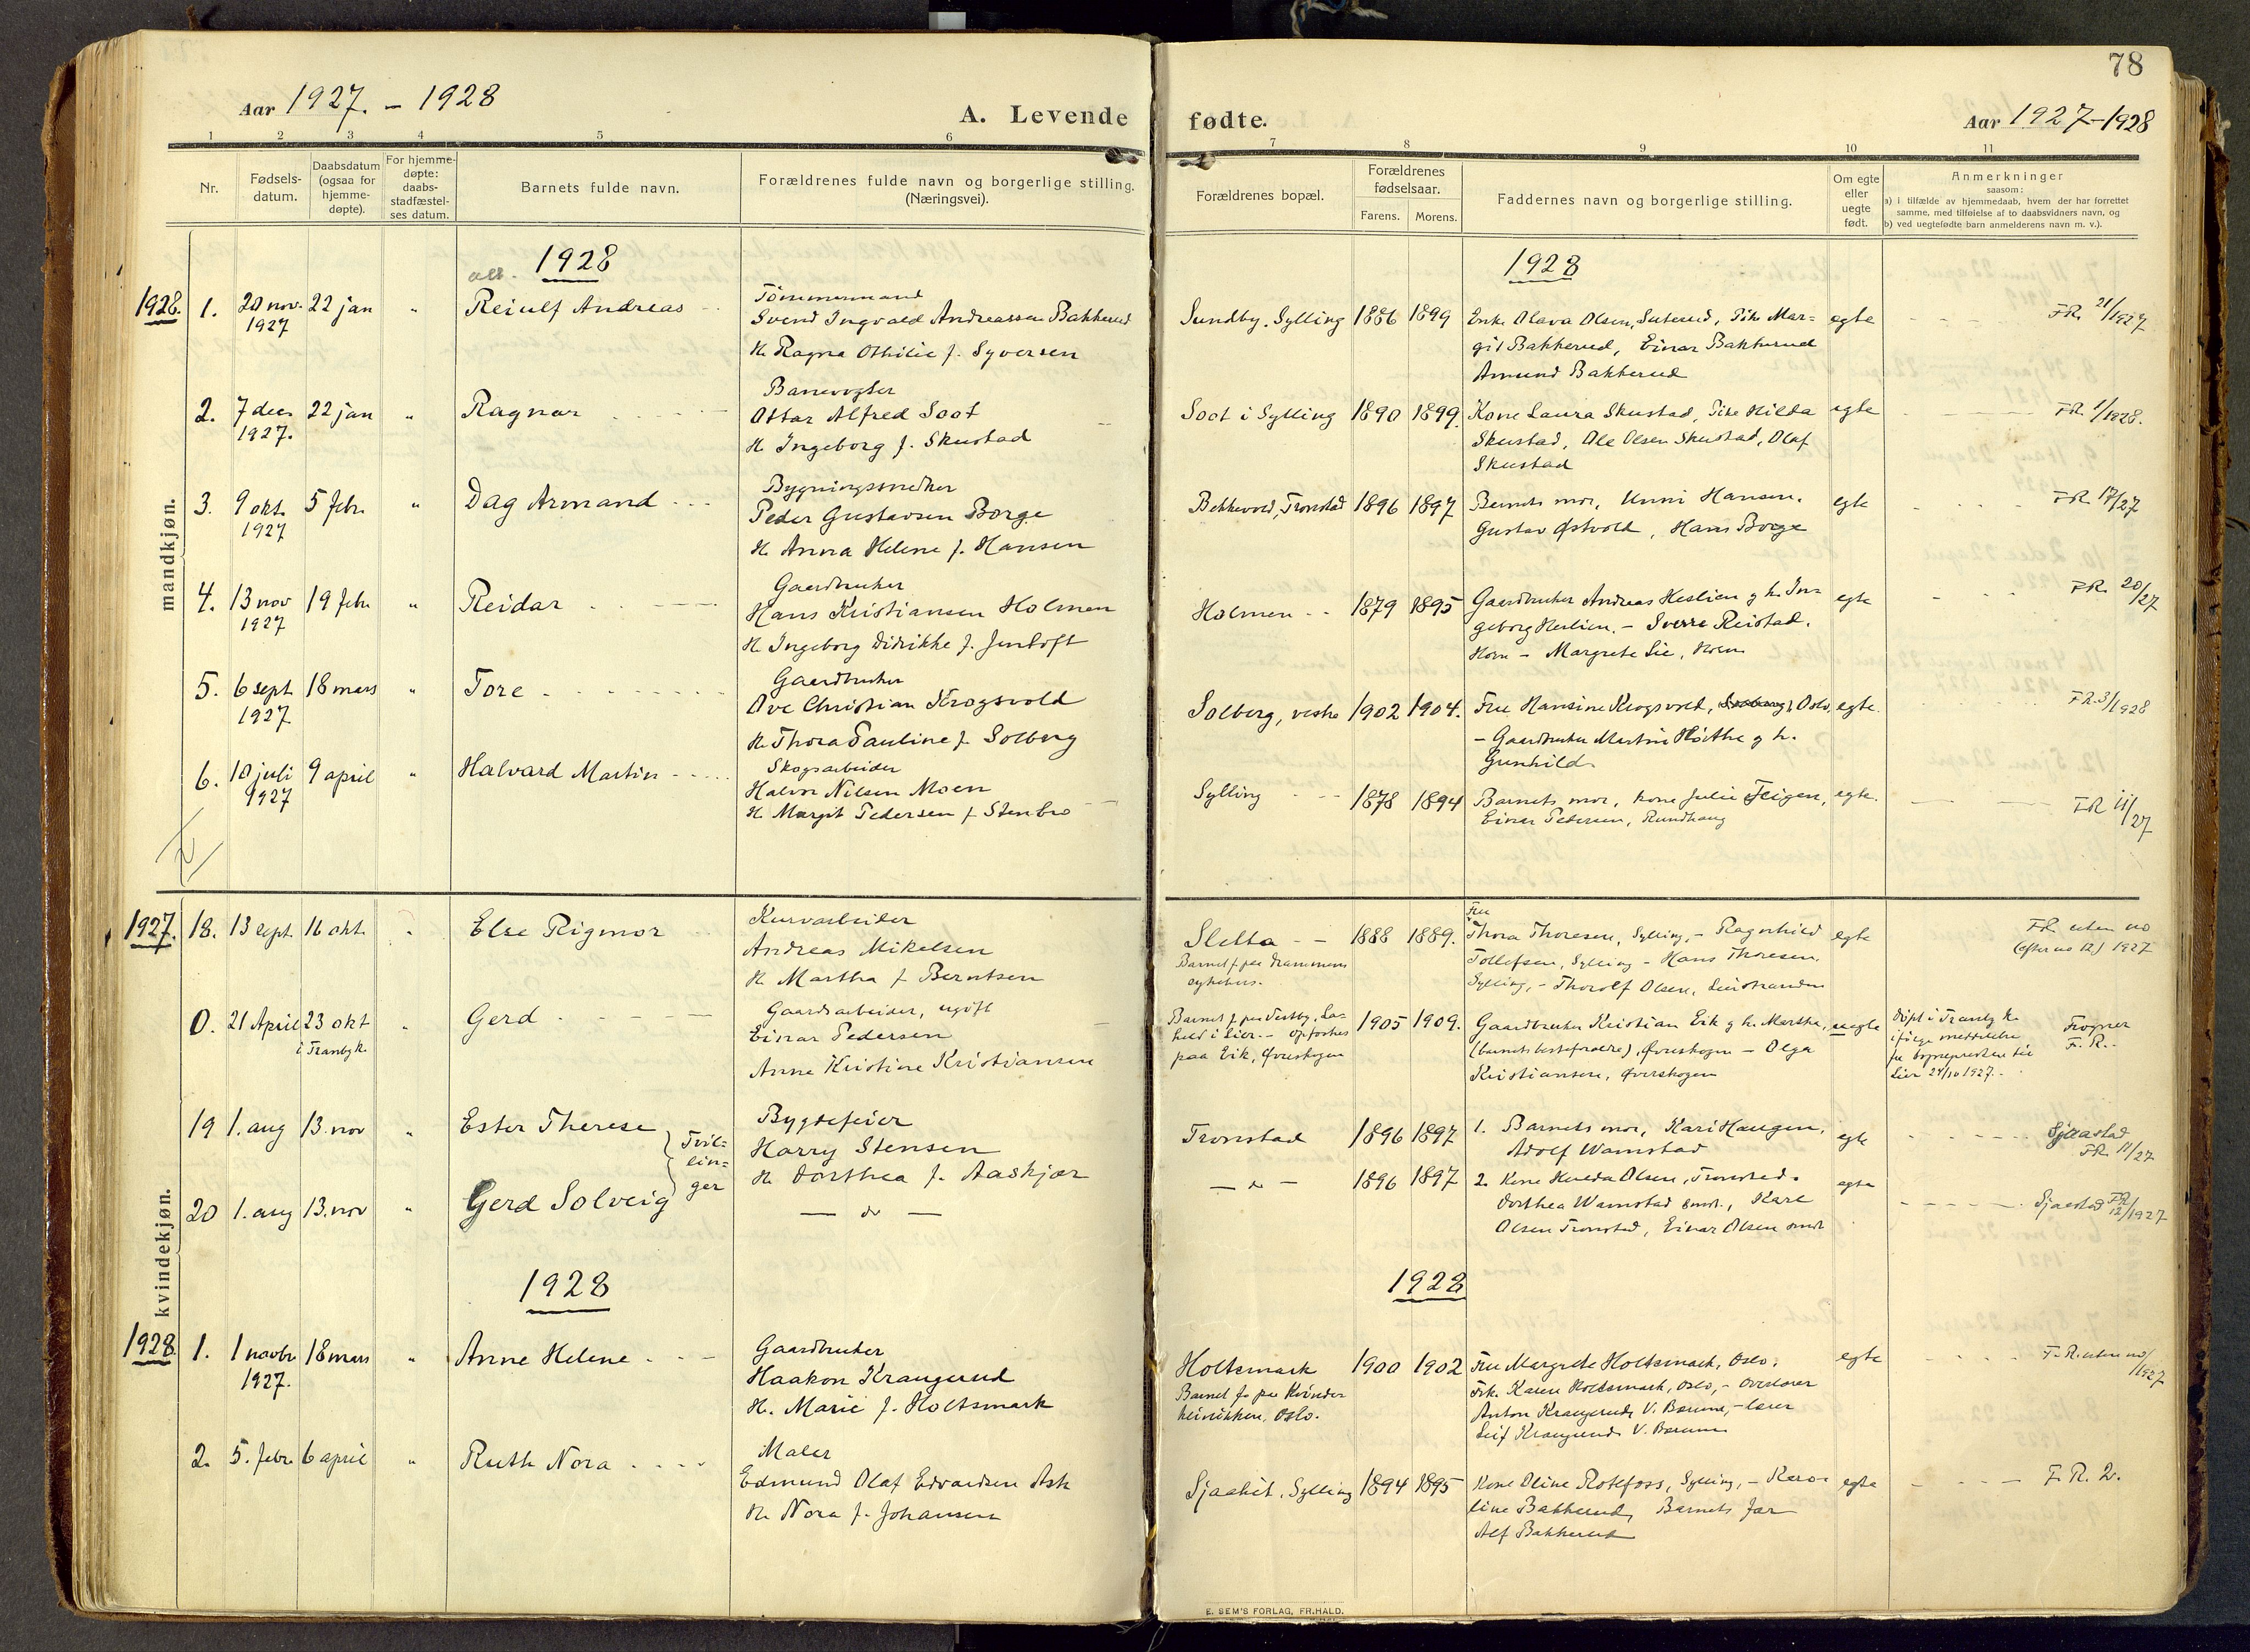 78
Aar 1927. - 1928
A. Levende fødte.
Aar 1927-1928
1 2 3 4 5 6 7 8 9 10 11
Nr.
Fødsels-
datum.
Daabsdatum
(ogsaa for
hjemme-
døpte).
For hjemme-
døpte:
daabs-
stadfæstel-
ses datum.
Barnets fulde navn.
Forældrenes fulde navn og borgerlige stilling.
(Næringsvei).
Forældrenes bopæl.
Forældrenes
fødselsaar.
Farens. Morens.
Faddernes navn og borgerlige stilling.
Om egte
eller
uegte
født.
Anmerkninger
saasom:
a) i tilfælde av hjemmedaab, hvem der har forrettet
samme, med tilføielse af to daabsvidners navn, og
b) ved uegtefødte barn anmelderens navn m. v.).
mandkjøn.
1928
1928
1928. 1. 20 nov. 22 jan " Reiulf Andreas
1927
Tømmermand
Svend Ingvald Andreassen Bakkerud
H. Ragna Othilie f. Syversen
Sundby. Sylling 1886 1899
Enke Olava Olsen, Suterud, Pike Mar-
git Bakkerud, Einar Bakkerud
Amund Bakkerud
egte
FR. 21/1927
2. 7 dec. 22 jan " Ragnar
1927.
Banevogter
Ottar Alfred Soot
H. Ingeborg f. Skustad
Soot i Sylling 1890 1899.
Kone Laura Skustad, Pike Hilda
Skustad, Ole Olsen Skustad, Olaf
Skustad
egte
FR. 1/1928.
3. 9 okt. 5 febr. " Dag Armand
1927
Bygningssnedker
Peder Gustavsen Borge
H. Anna Helene f. Hansen
Bekkevold, Tronstad 1896 1897
Barnets mor, Unni Hansen.
Gustav Østvold, Hans Borge
egte
FR 17/27
4. 13 nov 19 febr. " Reidar
1927
Gaardbruker
Hans Kristiansen Holmen
H. Ingeborg Didrikke f. Jentoft
Holmen 1879 1895
Gaardbruker Andreas Heslien g h. In-
geborg Heslien. - Sverre Reistad.
Horn - Margrete Lie,
egte
FR. 20/27
5. 6 sept. 18 mars " Tore
1927
Gaardbruker
Ove Christian Krogsvold
H. Thora Pauline f. Solberg
Solberg, vestre 1902 1904.
Fru Hansine Krogsvold, Oslo,
- Gaardbruker Martin g h.
Gunhild.
egte.
FR. 3/1928
6. 10 juli 9 april " Halvard Martin
1927
Skogsarbeider
Halvor Nilsen Moen
H. Margit Pedersen f Stenbro
Sylling 1878 1894
Barnets mor, kone Julie Teigen,
Einar Pedersen, Rundhaug
egte.
FR 11/27
kvindekjøn.
1927. 18. 13 sept. 16 okt. " Else Rigmor
Kurvarbeider
Andreas Mikelsen
H. Martha f Berntsen
Sletta 1888 1889.
Barnet f. paa Drammens
sykehus.
Fru
Thora Thoresen, Sylling, - Ragnhild
Tollefsen, Sylling - Hans Thoresen.
Sylling, - Thorolf Olsen, Svinstranden
egte
FR. uten no
(efter no 12) 1927
0. 21 April 23 okt " Gerd
i Tranby k.
Gaardsarbeider, ugift
Einar Pedersen
Anne Kristine Kristiansen
Barnet f. paa Vestby, La-
held i Lier. - Opfostres
paa Eik, Øvreskogen
1905 1909.
Gaardbruker Kristian Eik g h. Martha,
(barnets besteforældre), Øvreskogen - Olga
Kristiansen, Øvreskogen
uegte
Døpt i Tranby k.
ifølge meddelelse
fra sogneprester til
Lier 24/10 1927. -
Frogner
F. R. -
19 1. aug 13. nov " Ester Therese
Tvil-
lin-
ger
Bygdefeier
Harry Stensen
H. Dorthea f. Aaskjær
Tronstad 1896 1897
1. Barnets mor, Kari Haugen,
Adolf Wamstad
egte
Sjaastad
FR. 11/27
20 1. aug 13. nov " Gerd Solveig
— do —
— do — 1896 1897
2. Kone Hulda Olsen, Tronstad.
Dorthea Wamstad smst., Karl
Olsen Tronstad, Einar Olsen smst
egte
Sjaastad FR 12/1927
1928
1928
1928 1. 1 novbr 18 mars " Anne Helene
1927.
Gaardbruker
Haakon Krangerud
H. Marie f. Holtsmark
Holtsmark 1900 1902
Barnet f. paa Kvinde-
klinikken, Oslo.
Fru Margrete Holtsmark, Oslo,
Frk. Karen Holtsmark, Oslo, - Overlærer
Anton Krangerud, V. Bærum, - lærer
Leif Krangerud V. Bærum
egte
F. R. uten no/
1927
2. 5. febr. 6 april " Ruth Nora
Maler
Edmund Olaf Edvardsen Ask
H. Nora f. Johansen
Sjaabit, Sylling 1894 1895
Kone Oline Rotefoss, Sylling, - Karo-
line Bakkerud, Barnets far
Alf Bakkerud
egte
F. R. 2.
E. SEM'S FORLAG, FR.HALD.